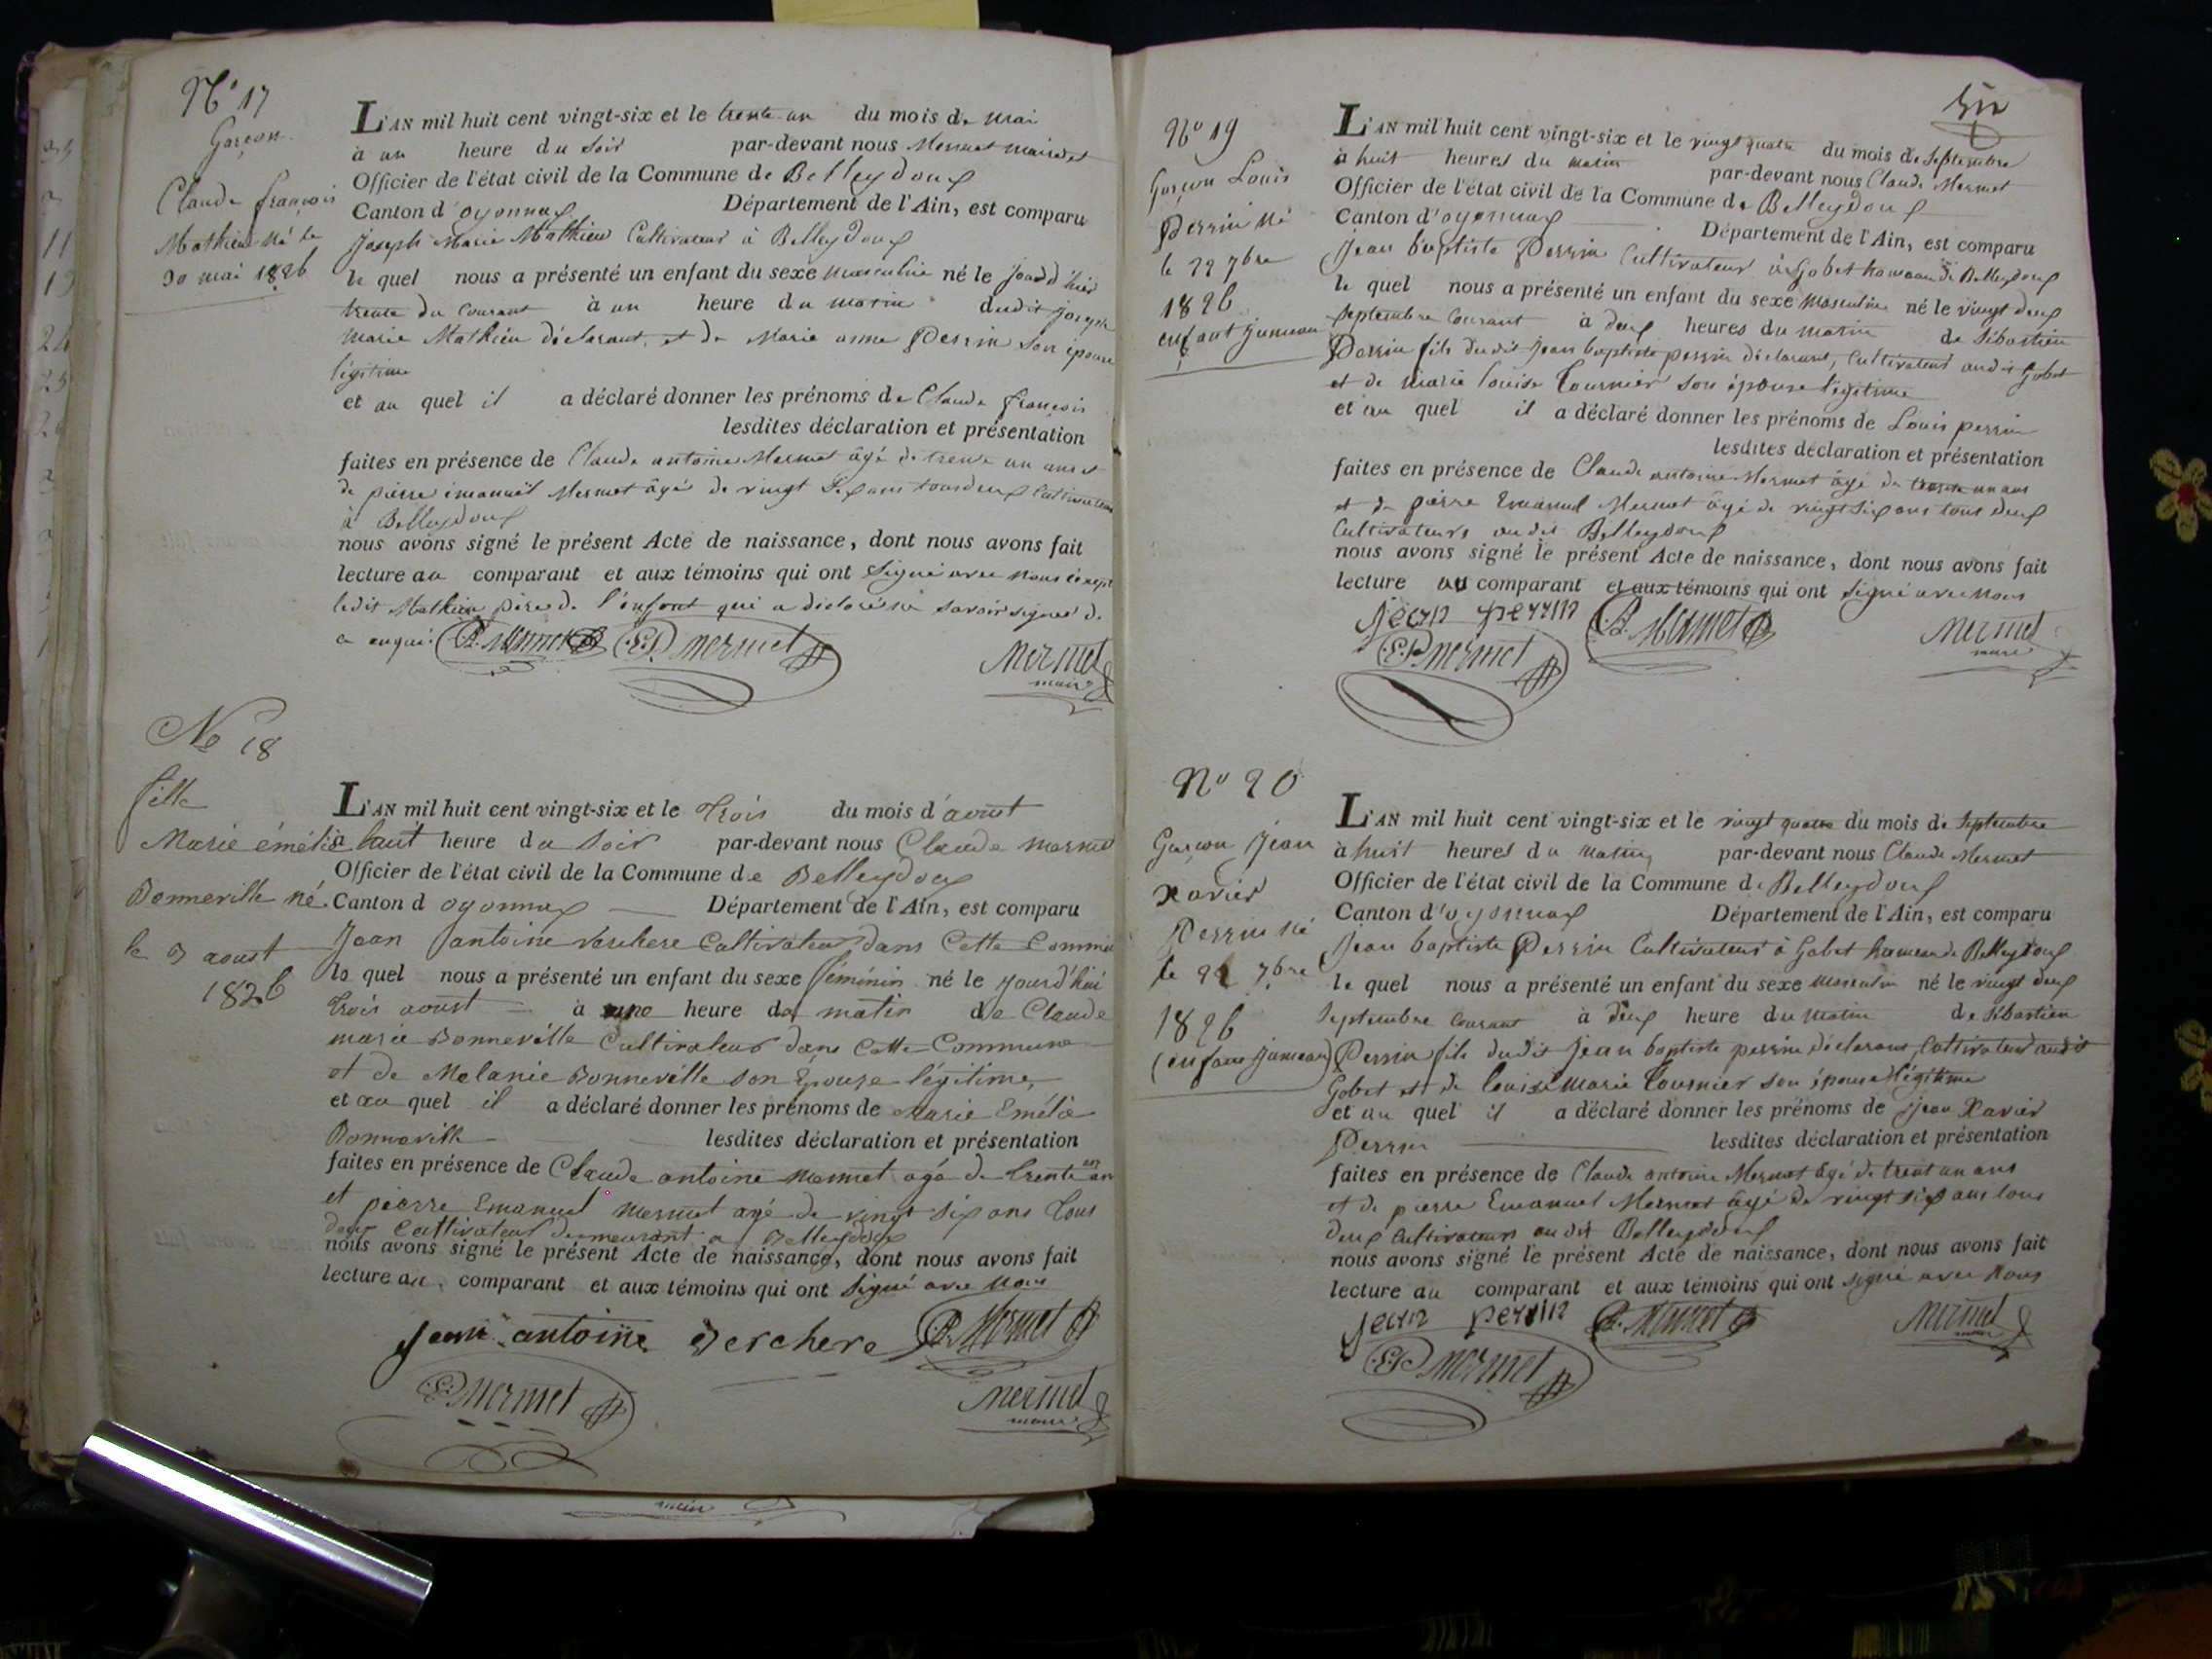 N° 17
Garçon
Claude françois
Mathieu né le
30 mai 1826
L'AN mil huit cent vingt-six et le trente un du mois de mai
à un heure du soir par-devant nous Mermet maire et
Officier de l'état civil de la Commune de Belleydoux
Canton d'oyonnax Département de l'Ain, est comparu
joseph Marie Mathieu Cultivateur à Belleydoux
le quel nous a présenté un enfant du sexe masculin né le jour d'hier
trente du courant à un heure du matin dudit joseph
marie Mathieu déclarant et de Marie anne Perrin son épouse
légitime
et au quel il a déclaré donner les prénoms de Claude françois
lesdites déclaration et présentation
faites en présence de Claude antoine Mermet âgé de trente un ans et
de pierre imanuël Mermet âgé de vingt six ans tous deux cultivateurs
à Belleydoux
nous avons signé le présent Acte de naissance, dont nous avons fait
lecture au comparant et aux témoins qui ont signé avec nous excepté
ledit Mathieu père de l'enfant qui a déclaré ne savoir signer de
ce enquis. Mermet E.P. mermet
Mermet
maire
No 18
fille
Marie émélie
Bonneville né
le 3 aoust
1826
L'AN mil huit cent vingt-six et le trois du mois d'aoust
à huit heure du soir par-devant nous Claude mermet
Officier de l'état civil de la Commune de Belleydoux
Canton d oyonnax Département de l'Ain, est comparu
Jean antoine Verchere Cultivateur dans Cette Commune
le quel nous a présenté un enfant du sexe féminin né le jourd'hui
trois aoust à une heure du matin de Claude
marie Bonneville Cultivateur dans Cette Commune
et de Melanie Bonneville son Epouse légitime,
et au quel il a déclaré donner les prénoms de Marie Emélie
Bonneville lesdites déclaration et présentation
faites en présence de Claude antoine Mermet agé de trente un an
et pierre Emanuel Mermet agé de vingt six ans tous
deux Cultivateur demeurant a Belleydoux
nous avons signé le présent Acte de naissance, dont nous avons fait
lecture au comparant et aux témoins qui ont signé avec nous
Jean antoine Verchere Mermet
E.P. mermet mermet
maire
N° 19
Garçon Louis
Perrin né
le 22 7bre
1826
enfant jumeau
L'AN mil huit cent vingt-six et le vingt quatre du mois de septembre
à huit heures du matin par-devant nous Claude Mermet
Officier de l'état civil de la Commune de Belleydoux
Canton d'oyonnax Département de l'Ain, est comparu
jean baptiste Perrin Cultivateur à Gobet hameau de Belleydoux
le quel nous a présenté un enfant du sexe masculin né le vingt deux
septembre courant à deux heures du matin de Sébastien
Perrin fils dudit jean baptiste perrin déclarant, Cultivateur audit Gobet
et de Marie louise Tournier son épouse légitime
et au quel il a déclaré donner les prénoms de Louis perrin
lesdites déclaration et présentation
faites en présence de Claude antoine Mermet âgé de trente un ans
et de pierre Emanuel Mermet âgé de vingt six ans tous deux
Cultivateurs audit Belleydoux
nous avons signé le présent Acte de naissance, dont nous avons fait
lecture au comparant et aux témoins qui ont signé avec nous
jean perrin Mermet Mermet
maire
E.P. mermet
N° 20
Garçon Jean
Xavier
Perrin né
le 22 7bre
1826
(enfant jumeau)
L'AN mil huit cent vingt-six et le vingt quatre du mois de septembre
à huit heures du matin par-devant nous Claude Mermet
Officier de l'état civil de la Commune de Belleydoux
Canton d'oyonnax Département de l'Ain, est comparu
jean baptiste Perrin Cultivateur à Gobet hameau de Belleydoux
le quel nous a présenté un enfant du sexe masculin né le vingt deux
septembre courant à deux heure du matin de Sébastien
Perrin fils dudit jean baptiste perrin déclarant, Cultivateur audit
Gobet et de louise Marie Tournier son épouse légitime
et au quel il a déclaré donner les prénoms de jean Xavier
Perrin lesdites déclaration et présentation
faites en présence de Claude antoine Mermet âgé de trent un ans
et de pierre Emanuel Mermet âgé de vingt six ans tous
deux Cultivateurs audit Belleydoux
nous avons signé le présent Acte de naissance, dont nous avons fait
lecture au comparant et aux témoins qui ont signé avec nous
jean perrin Mermet Mermet
maire
E.P. mermet
maire